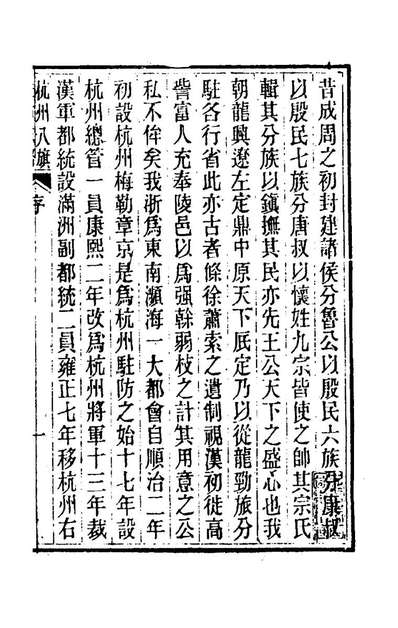 昔成周之初封建諸侯分魯公以殷民六族分康叔
以殷民七族分唐叔以懷姓九宗皆使之帥其宗氏
輯其分族以鎮撫其民亦先王公天下之盛心也我
朝龍興遼左定鼎中原天下厎定乃以從龍勁旅分
駐各行省此亦古者條徐蕭索之遺制視漢初徙高
訾富人充奉陵邑以爲强榦弱枝之計其用意之公
私不侔矣我浙爲東南瀕海一大都會自順治二年
初設杭州梅勒章京是爲杭州駐防之始十七年設
杭州總管一員康熙二年改爲杭州將軍十三年裁
漢軍都統設滿洲副都統二員雍正七年移杭州右
杭州八旗
序
一